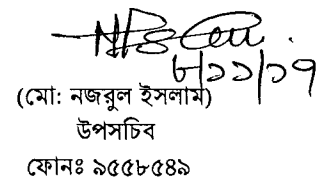 ৮/১১/১৭
(মো: নজরুল ইসলাম)
উপসচিব
ফোনঃ ৯৫৫৮৫৪৯